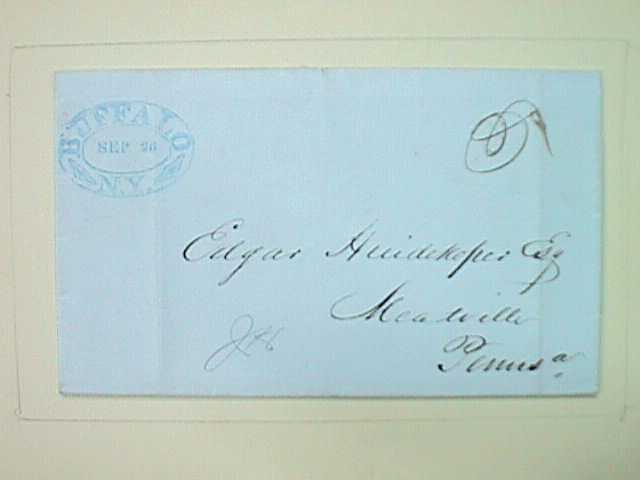 BUFFALO
SEP 26
N.Y.
Edgar Huidekoper Esq
Meadville
Pennsa